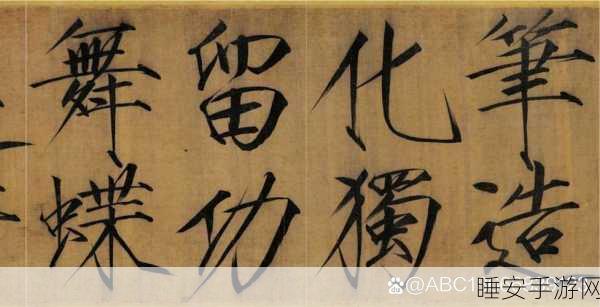 筆造
化獨
留功
舞蝶
睡安手游网